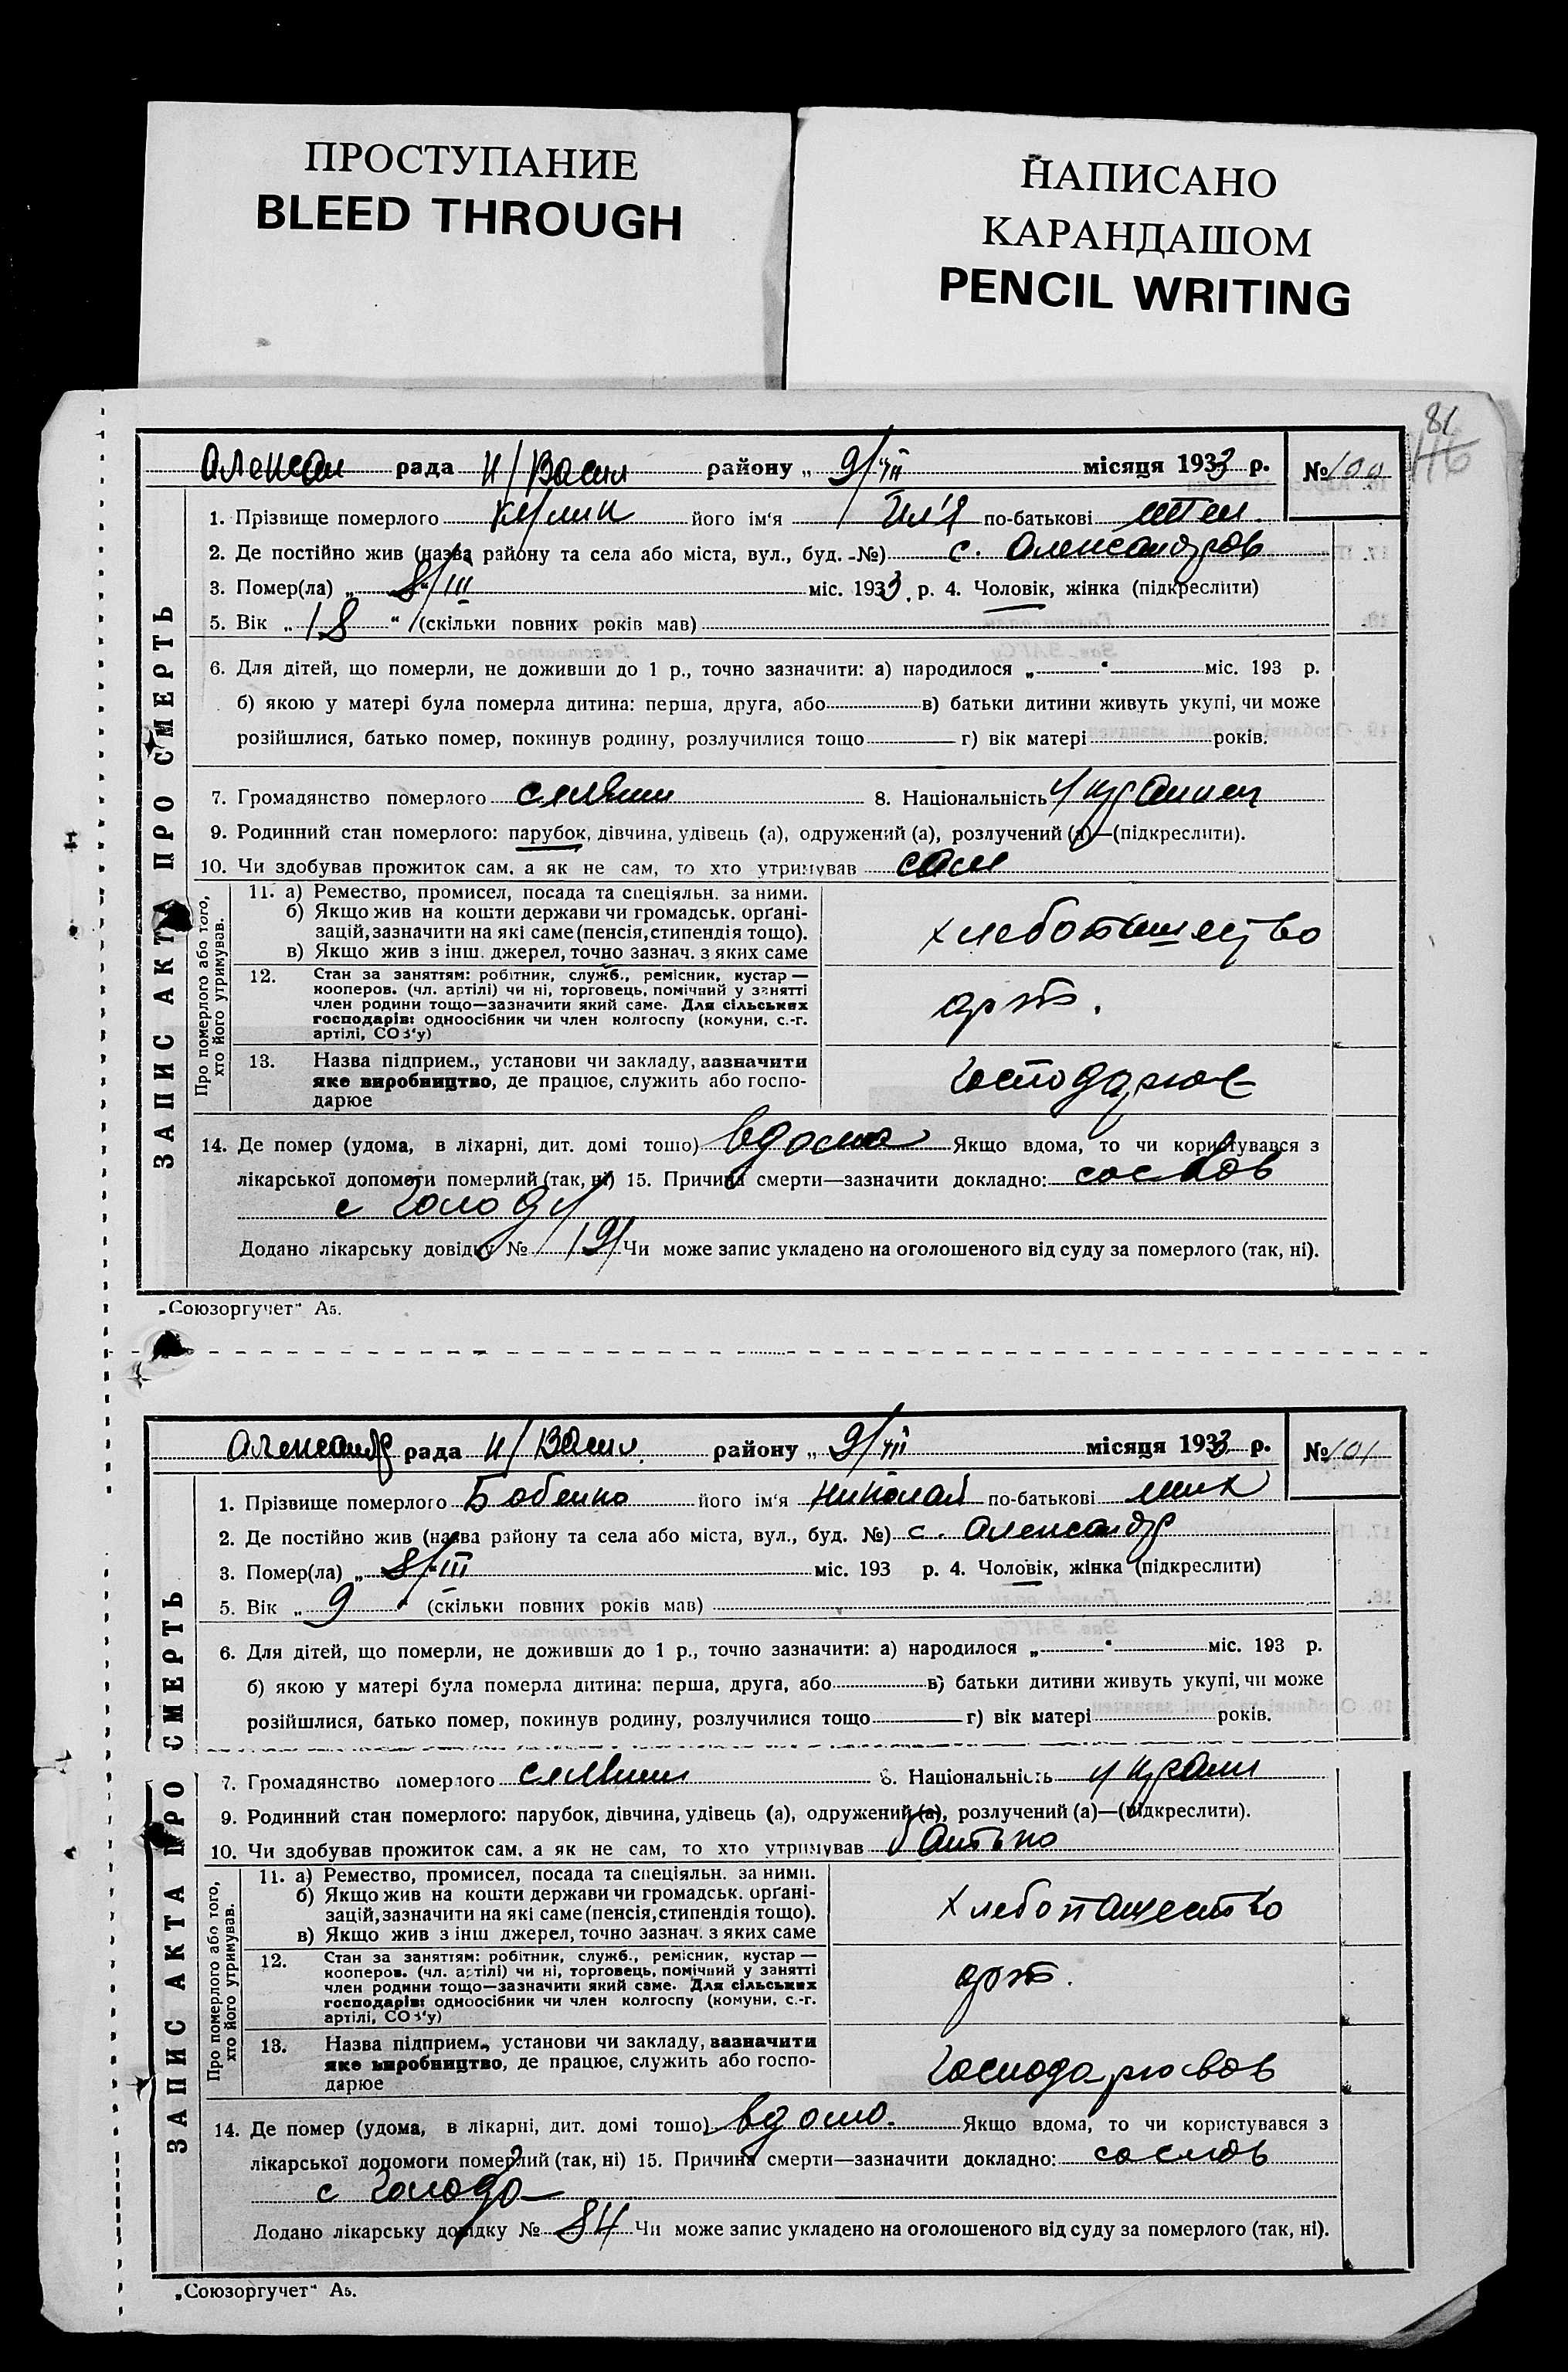 ПРОСТУПАНИЕ
BLEED THROUGH
НАПИСАНО
КАРАНДАШОМ
PENCIL WRITING
81
116
Алексан рада Н/Васил району „ 9/VII місяця 1933 р. № 100
1. Прізвище померлого Кулик його ім'я Ил'я по-батькові
2. Де постійно жив (назва району та села або міста, вул., буд. №) с. Александров
3. Помер(ла) „ 8/III міс. 1933 р. 4. Чоловік, жінка (підкреслити)
5. Вік „ 18 “ (скільки повних років мав)
6. Для дітей, що померли, не доживши до 1 р., точно зазначити: а) народилося „ “ міс. 193 р.
б) якою у матері була померла дитина: перша, друга, або в) батьки дитини живуть укупі, чи може
розійшлися, батько помер, покинув родину, розлучилися тощо г) вік матері років.
7. Громадянство померлого 8. Національність Украинец
9. Родинний стан померлого: парубок, дівчина, удівець (а), одружений (а), розлучений (а)—(підкреслити).
10. Чи здобував прожиток сам, а як не сам, то хто утримував сам
ЗАПИС АКТА ПРО СМЕРТЬ
Про померлого або того, хто його утримував.
11. а) Ремество, промисел, посада та спеціяльн. за ними.
б) Якщо жив на кошти держави чи громадськ. орґані-
зацій, зазначити на які саме (пенсія, стипендія тощо).
в) Якщо жив з інш. джерел, точно зазнач. з яких саме
хлебопашество
12. Стан за заняттям: робітник, служб., ремісник, кустар —
кооперов. (чл. артілі) чи ні, торговець, помічний у занятті
член родини тощо—зазначити який саме. Для сільських
господарів: одноосібник чи член колгоспу (комуни, с.-г.
артілі, СОЗ'у)
арт.
13. Назва підприєм., установи чи закладу, зазначити
яке виробництво, де працює, служить або госпо-
дарює
господарює
14. Де помер (удома, в лікарні, дит. домі тощо) вдома Якщо вдома, то чи користувався з
лікарської допомоги померлий (так, ні) 15. Причина смерти—зазначити докладно:
с голоду
Додано лікарську довідку № 191 Чи може запис укладено на оголошеного від суду за померлого (так, ні).
„Союзоргучет“ А5.
Александр рада Н/Васил. району „ 9/VII місяця 1933 р. № 101
1. Прізвище померлого Бобенко його ім'я Николай по-батькові Мих
2. Де постійно жив (назва району та села або міста, вул., буд. №) с. Александр
3. Помер(ла) „ 8/III міс. 193 р. 4. Чоловік, жінка (підкреслити)
5. Вік „ 9 “ (скільки повних років мав)
6. Для дітей, що померли, не доживши до 1 р., точно зазначити: а) народилося „ “ міс. 193 р.
б) якою у матері була померла дитина: перша, друга, або в) батьки дитини живуть укупі, чи може
розійшлися, батько помер, покинув родину, розлучилися тощо г) вік матері років.
7. Громадянство померлого 8. Національність Украин
9. Родинний стан померлого: парубок, дівчина, удівець (а), одружений (а), розлучений (а)—(підкреслити).
10. Чи здобував прожиток сам, а як не сам, то хто утримував батько
ЗАПИС АКТА ПРО СМЕРТЬ
Про померлого або того, хто його утримував.
11. а) Ремество, промисел, посада та спеціяльн. за ними.
б) Якщо жив на кошти держави чи громадськ. орґані-
зацій, зазначити на які саме (пенсія, стипендія тощо).
в) Якщо жив з інш джерел, точно зазнач. з яких саме
хлебопашество
12. Стан за заняттям: робітник, служб., ремісник, кустар —
кооперов. (чл. артілі) чи ні, торговець, помічний у занятті
член родини тощо—зазначити який саме. Для сільських
господарів: одноосібник чи член колгоспу (комуни, с.-г.
артілі, СОЗ'у)
арт.
13. Назва підприєм., установи чи закладу, зазначити
яке виробництво, де працює, служить або госпо-
дарює
господарював
14. Де помер (удома, в лікарні, дит. домі тощо) вдома Якщо вдома, то чи користувався з
лікарської допомоги померлий (так, ні) 15. Причина смерти—зазначити докладно:
с голода
Додано лікарську довідку № 84 Чи може запис укладено на оголошеного від суду за померлого (так, ні).
„Союзоргучет“ А5.